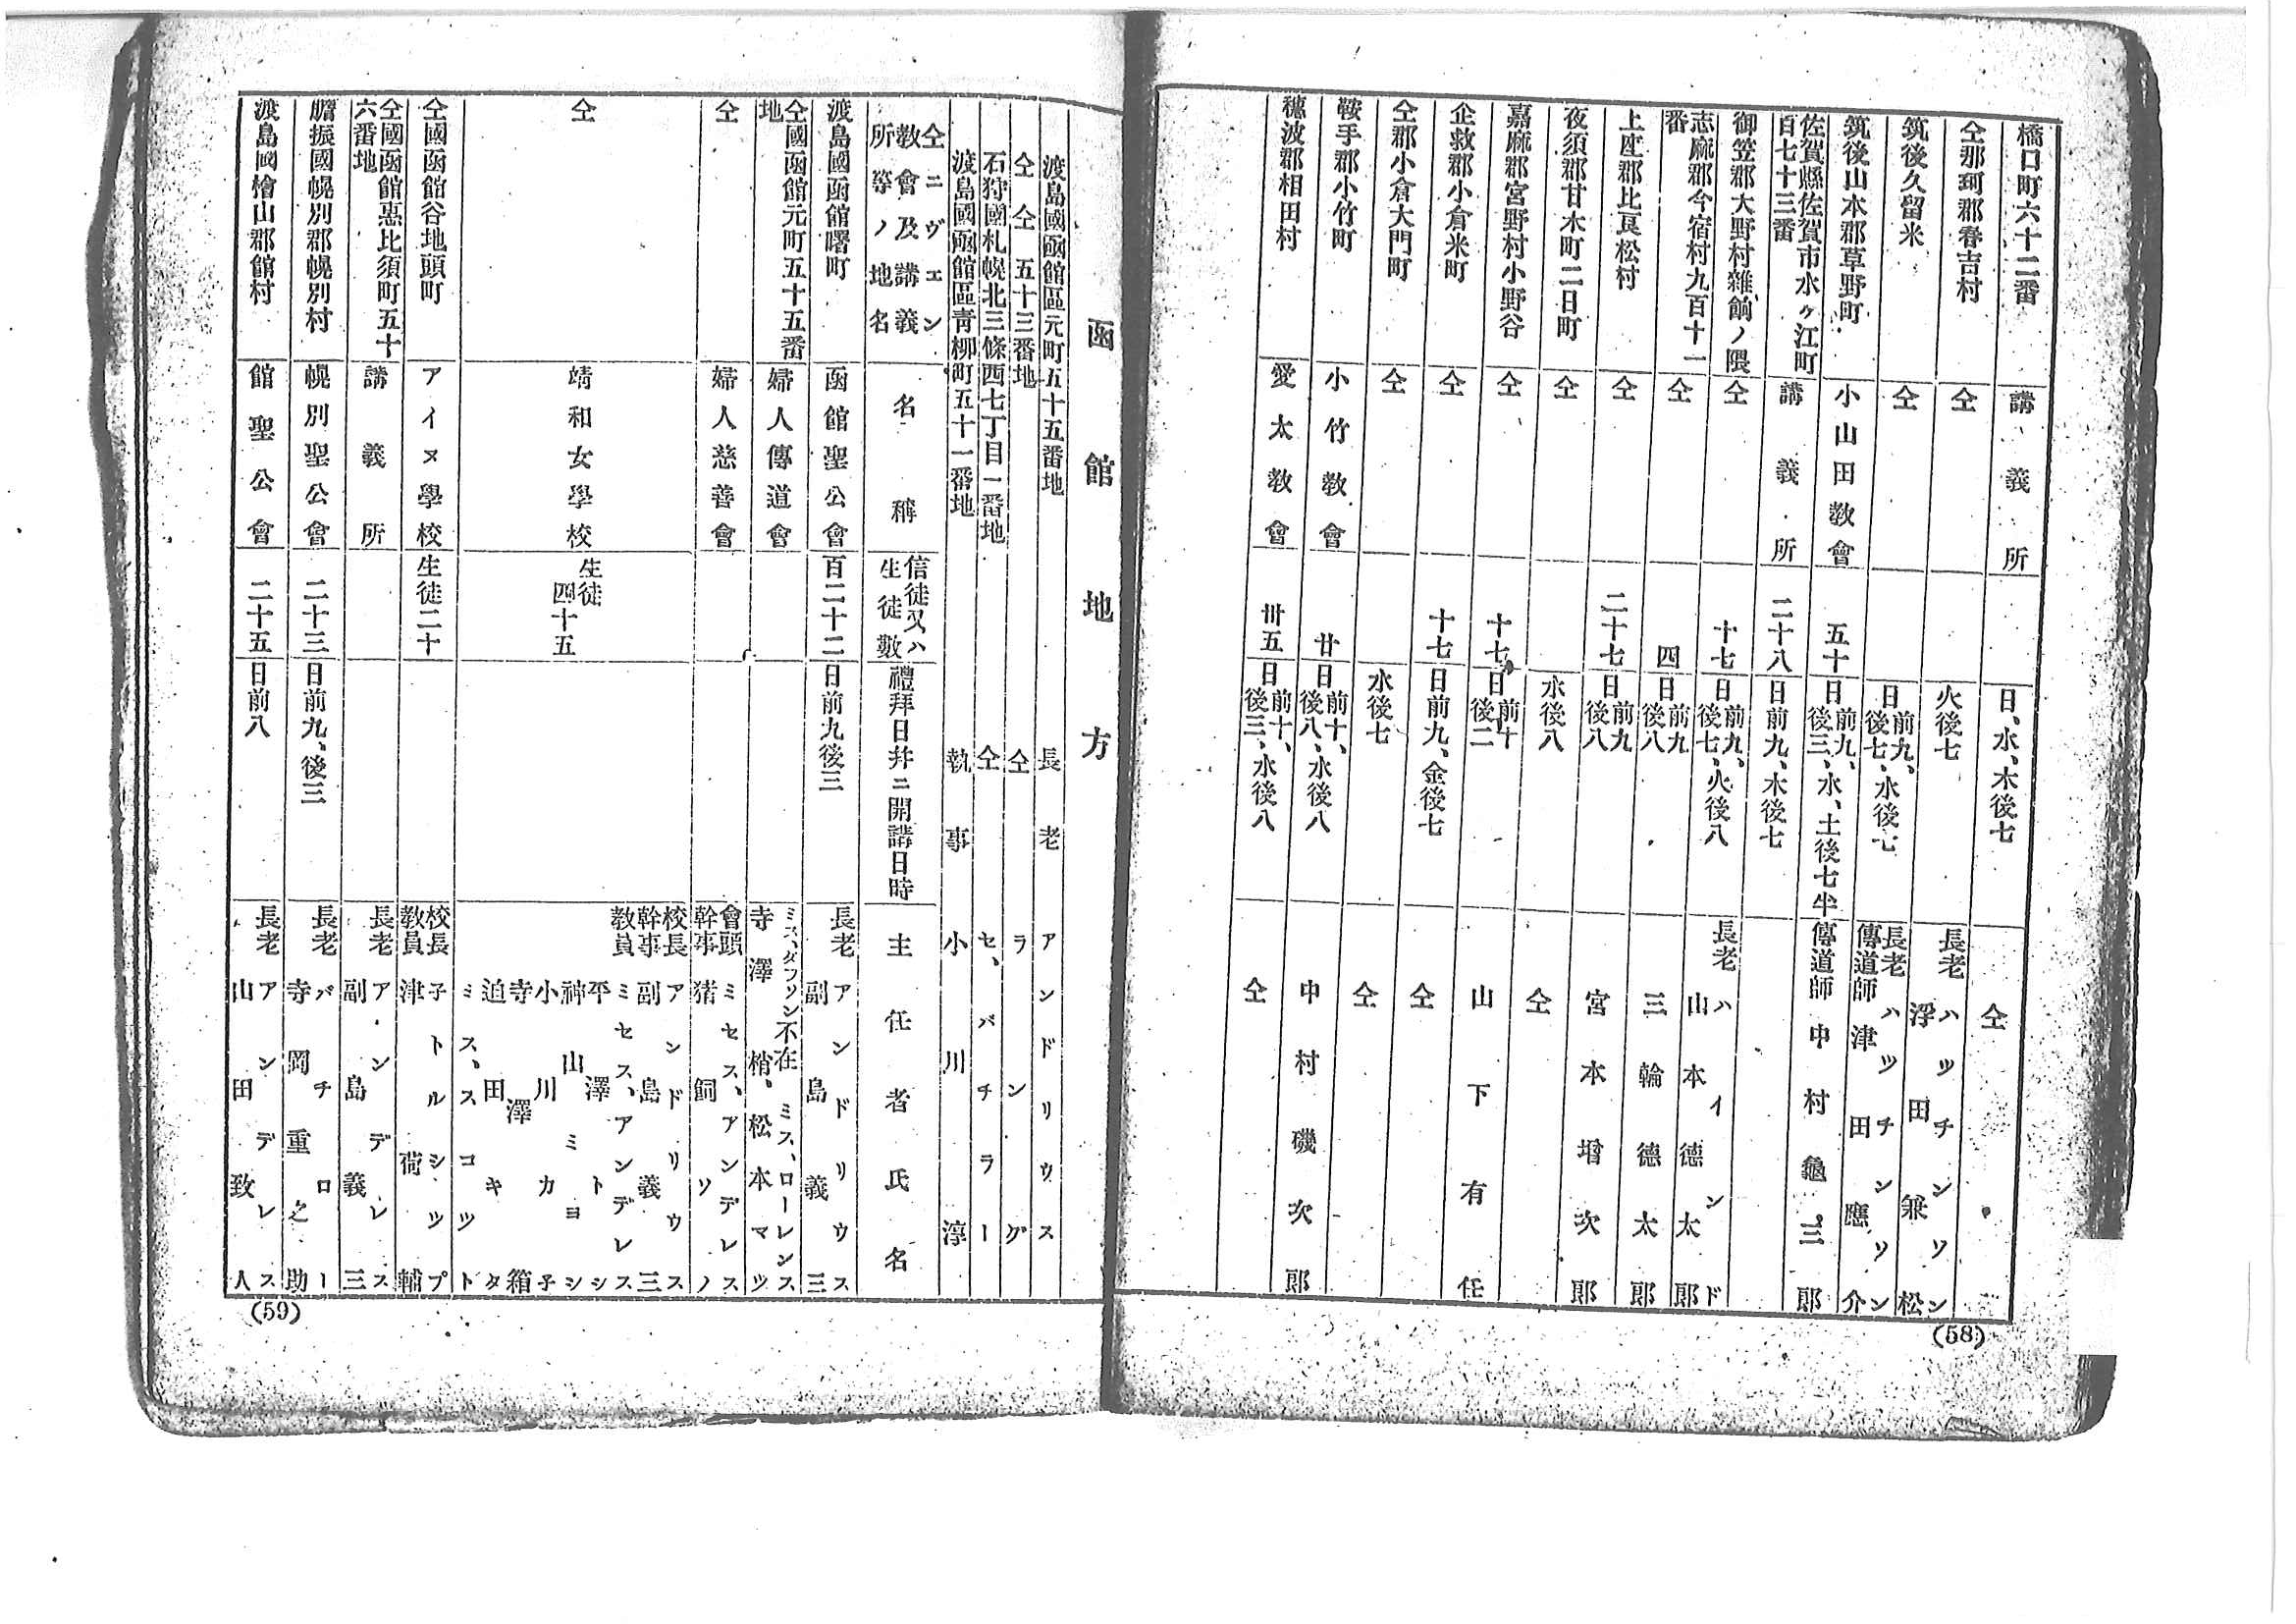 橋口町六十二番 講義所 日、水、木後七 仝
仝那珂郡春吉村 仝 火後七 長老ハッチンソン
浮田兼松
筑後久留米 仝 日前九、後七、水後七 長老ハッチンソン
傳道師津田應介
筑後山本郡草野町 小山田教會 五十 日前九、後三、水、土後七半 傳道師中村龜三郎
佐賀縣佐賀市水ヶ江町百七十三番 講義所 二十八 日前九、木後七
御笠郡大野村雜餉ノ隈 仝 十七 日前九、後七、火後八 長老ハインド
山本德太郎
志麻郡今宿村九百十一番 仝 四 日前九後八 三輪德太郎
上座郡比良松村 仝 二十七 日前九後八 宮本增次郎
夜須郡甘木町二日町 仝 水後八 仝
嘉麻郡宮野村小野谷 仝 十七 日前十後二 山下有任
企救郡小倉米町 仝 十七 日前九、金後七 仝
仝郡小倉大門町 仝 水後七 仝
鞍手郡小竹町 小竹教會 廿 日前十、後八、水後八 中村磯次郎
穗波郡相田村 愛太教會 卅五 日前十、後三、水後八 仝
(58)
函館地方
渡島國函館區元町五十五番地 長老 アンドリウス
仝仝 五十三番地 仝 ラング
石狩國札幌北三條西七丁目一番地 仝 セ、バチラー
渡島國函館區青柳町五十一番地 執事 小川淳
仝ニヴェン教會及講義所等ノ地名 名稱 信徒又ハ生徒數 禮拜日幷ニ開講日時 主任者氏名
渡島國函館曙町 函館聖公會 百二十二 日前九後三 長老アンドリウス
副島義三
仝國函館元町五十五番地 婦人傳道會 ミス、ダフソン不在 ミス、ローレンス
寺澤梢、松本マツ
仝 婦人慈善會 會頭ミセス、アンデレス
幹事猪飼ソノ
仝 靖和女學校 生徒四十五 校長アンドリウス
幹事副島義三
教員ミセス、アンデレス
平澤トシ
神山ミヨシ
小川カ子
寺澤箱
迫田キタ
ミス、スコット
仝國函館谷地頭町 アイヌ學校 生徒二十 校長子トルシップ
教員津荷輔
仝國函館惠比須町五十六番地 講義所 長老アンデレス
副島義三
膽振國幌別郡幌別村 幌別聖公會 二十三 日前九、後三 長老バチロー
寺岡重之助
渡島國檜山郡館村 館聖公會 二十五 日前八 長老アンデレス
山田致人
(59)